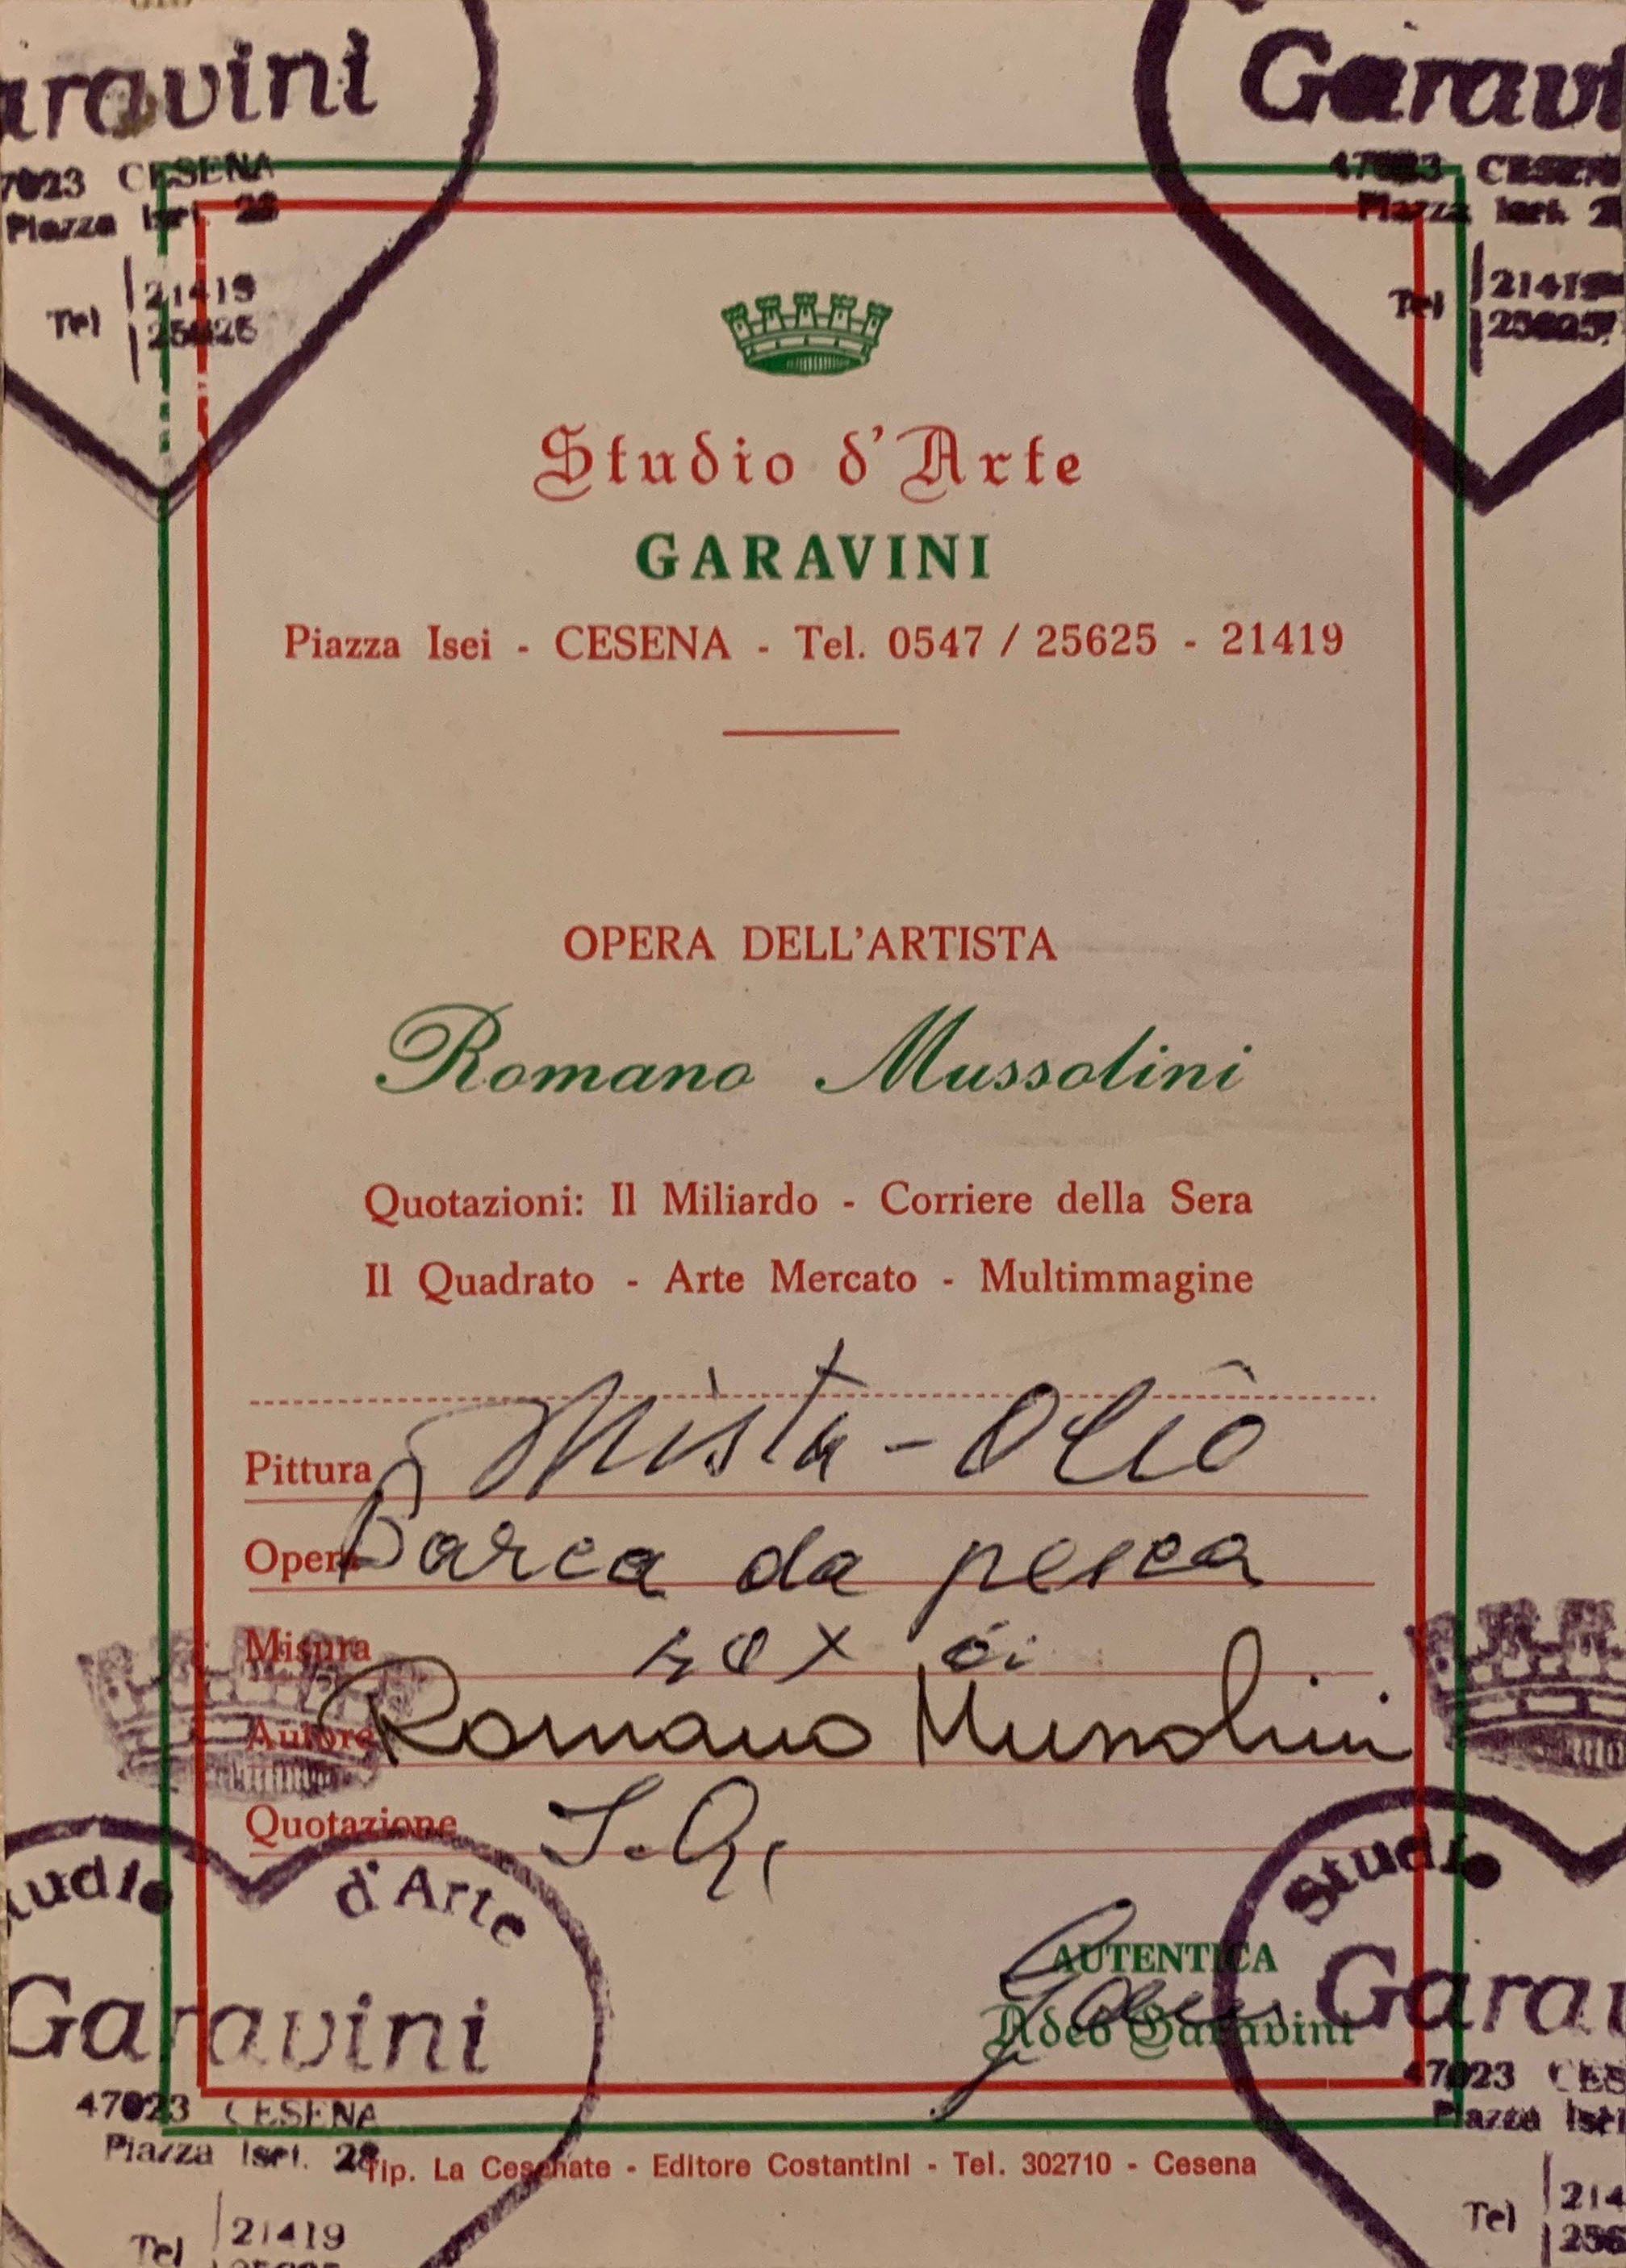 aravini
Garavi
7023 CESENA
Piazza Isei. 28
Tel
21419
25625
47023 CESEN
Piazza Isei. 2
Tel
21419
25625
Studio d'Arte
GARAVINI
Piazza Isei - CESENA - Tel. 0547 / 25625 - 21419
OPERA DELL'ARTISTA
Romano Mussolini
Quotazioni: Il Miliardo - Corriere della Sera
Il Quadrato - Arte Mercato - Multimmagine
Pittura Mista - Olio
Opera Barca da pesca
Misura
Autore Romano Mussolini
Quotazione
AUTENTICA
Adeo Garavini
tudio d'Arte
Garavini
47023 CESENA
Piazza Isei. 28
Tel
21419
Studio
Garav
47023 CES
Piazza Isei
Tel
214
256
Tip. La Cesenate - Editore Costantini - Tel. 302710 - Cesena